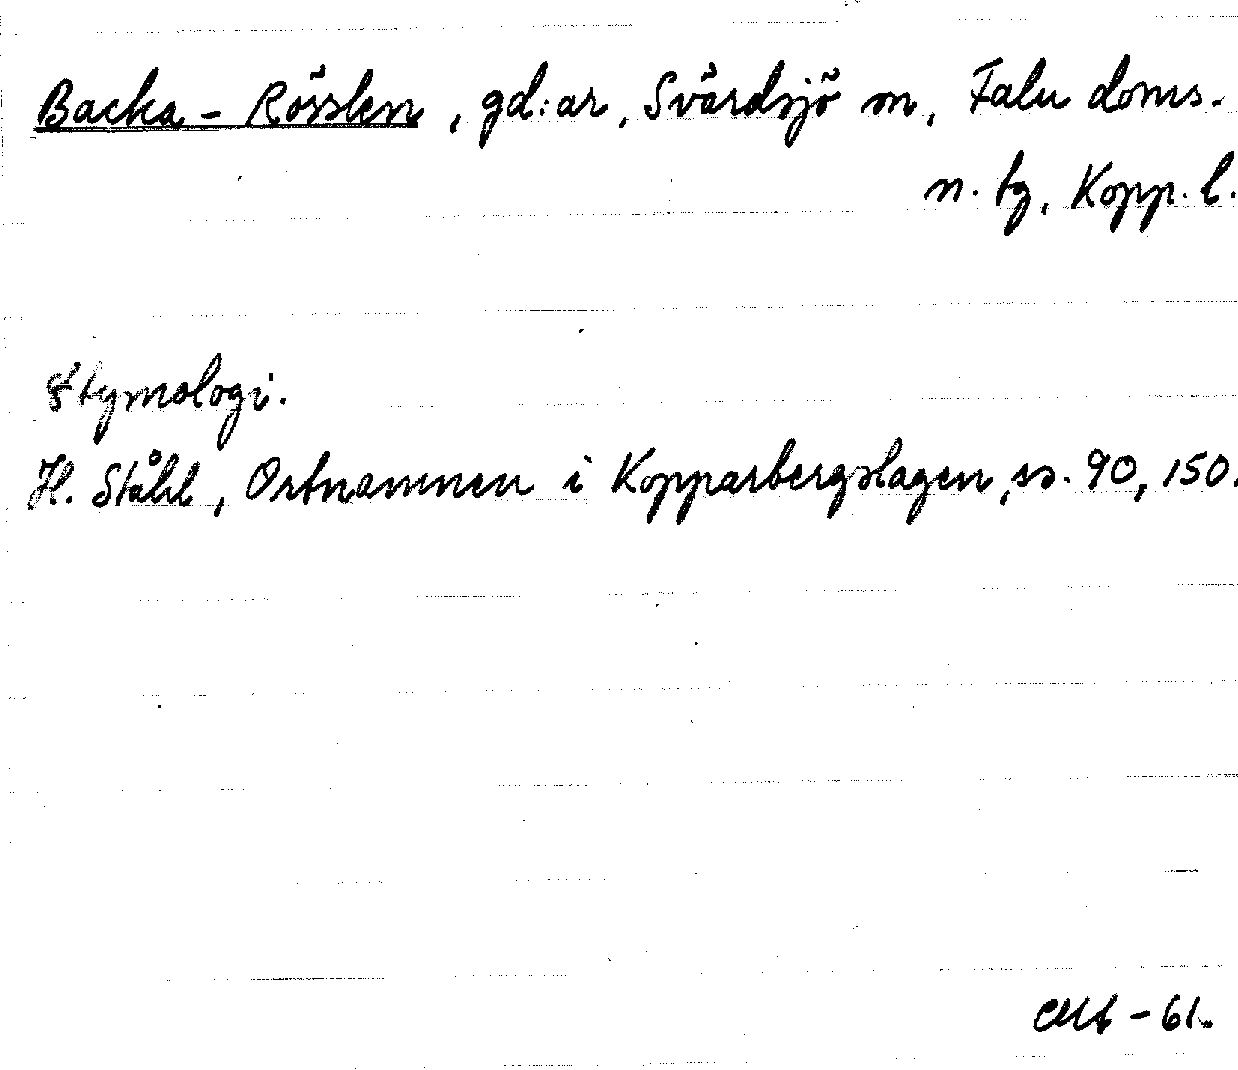 Backa - Rösslen, gd:ar, Svärdsjö sn, Falu doms.
n. tg, Kopp. l.
Etymologi.
H. Ståhl, Ortnamnen i Kopparbergslagen, ss. 90, 150.
-61.